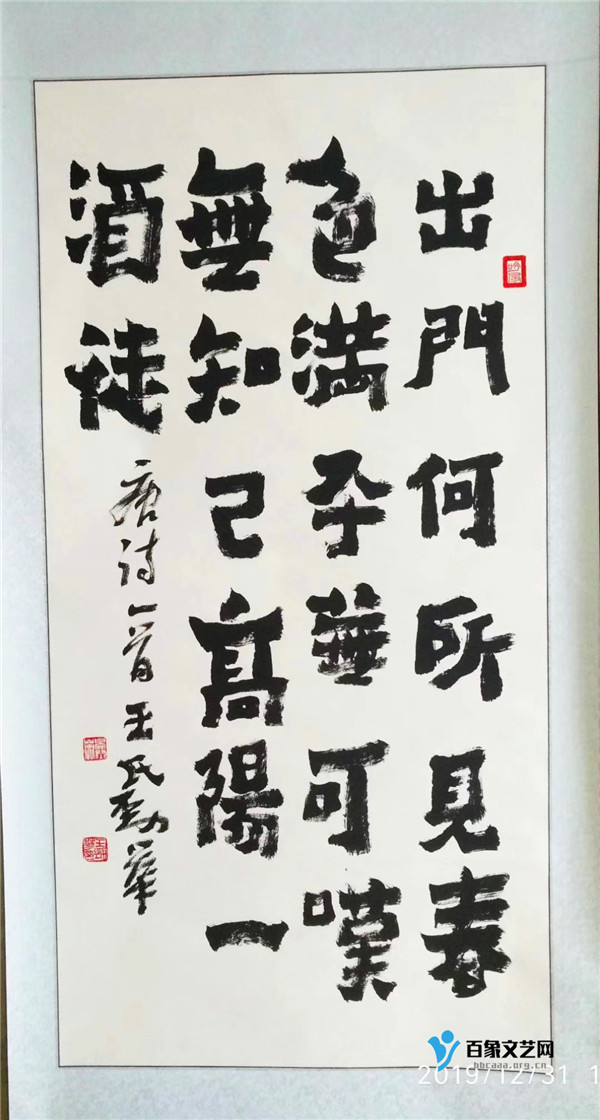 出門何所見春
色滿平蕪可嘆
無知己高陽一
酒徒
唐诗一首王氏勁華
百象文艺网
hbcaaa.org.cn
2019/12/31 1